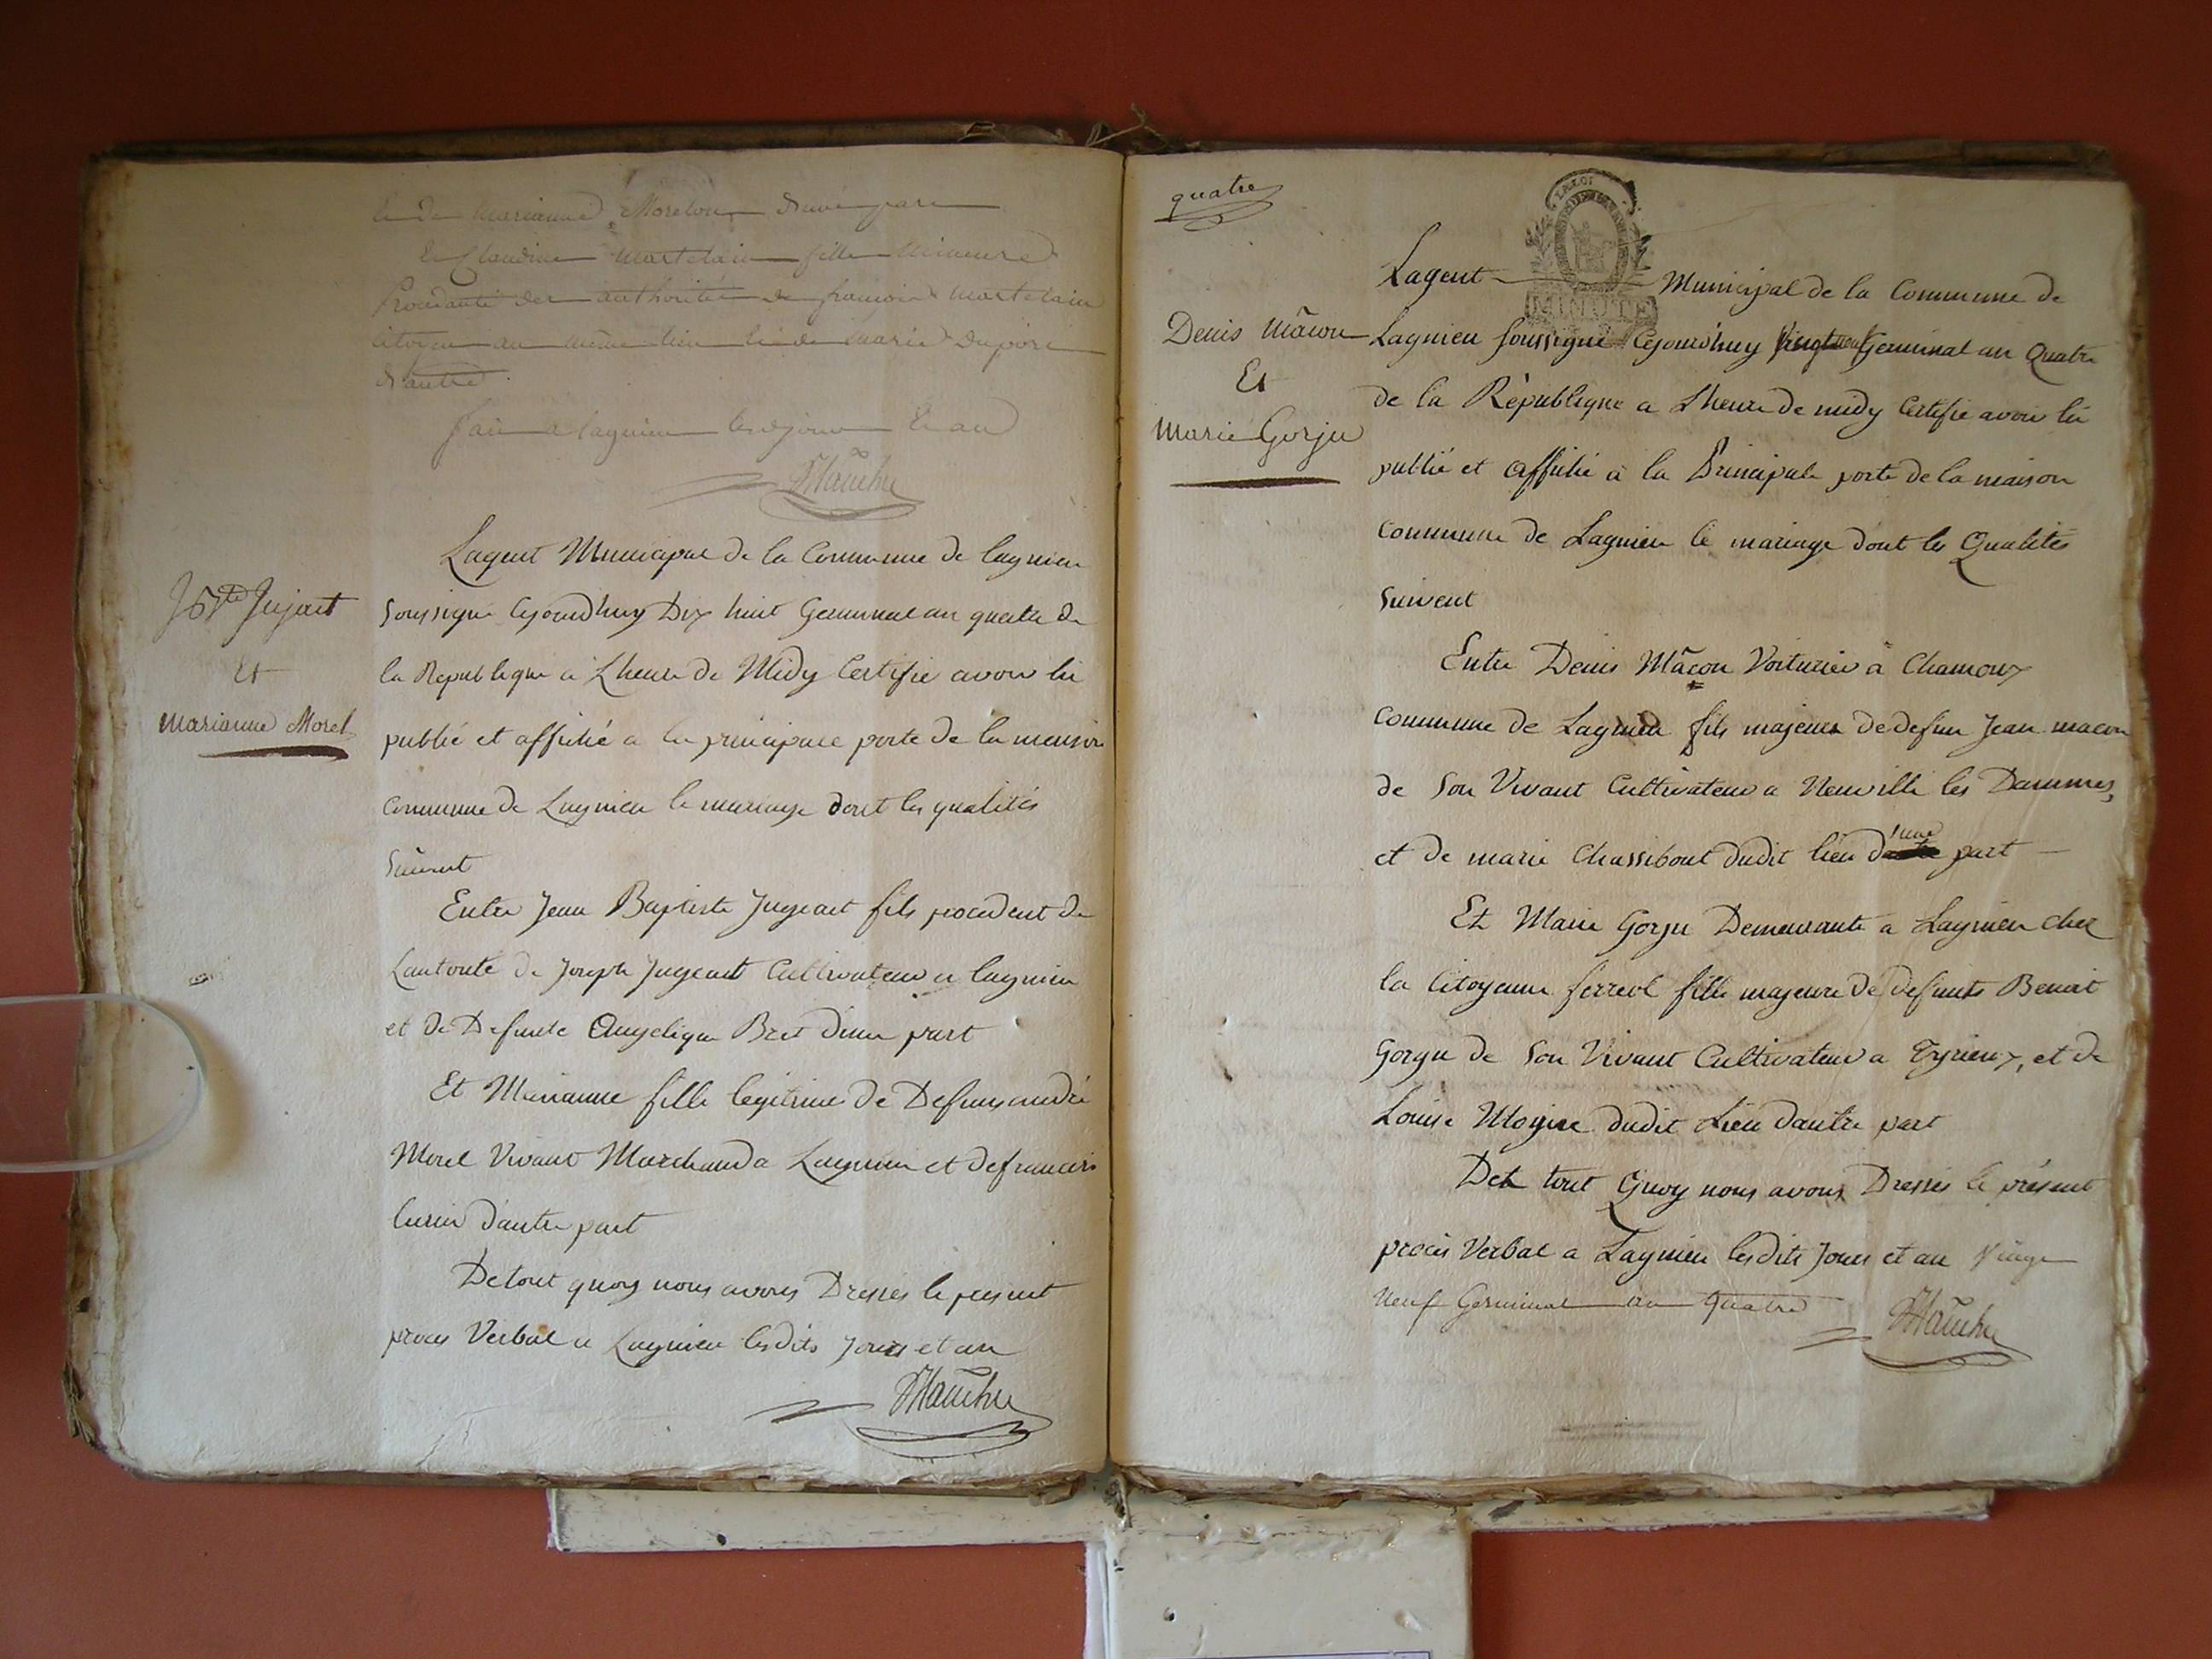 et de Marianne Morelon d'une part
Et Claudine Martelain fille mineure
Procedante des authorités de françois Martelain
citoyen au même lieu et de Marie Dupoire
d'autre
fait a lagnieu lesd jour et an
J Bte Jujeat
Et
Marianne Morel
Lagent Municipal de la Commune de lagnieu
Soussigné Cejourdhuy Dix huit Germinal an quatre de
la Republique a Lheure de Midy Certifie avoir lu
publié et affiché a la principale porte de la maison
commune de Lagnieu le mariage dont les qualités
Suivent
Entre Jean Baptiste Jugeat fils procedent de
Lautorité de Joseph Jugeat Cultivateur a lagnieu
et de Defunte Angelique Bret dune part
Et Marianne fille legitime de Defunt andré
Morel Vivant Marchand a Lagnieu et de francois
dautre part
De tout quoy nous avons Dressés le present
proces Verbal a Lagnieu lesdits Jours et an
quatre
Denis Mâcon
Et
Marie Gorju
LA LOI
MINUTE
Lagent Municipal de la Commune de
Lagnieu soussigné Cejourdhuy Vingt neuf Germinal an Quatre
de la République a Lheure de midy Certifie avoir lû
publié et affiché à la Principale porte de la maison
commune de Lagnieu le mariage dont les Qualités
Suivent
Entre Denis Mâcon Voiturier à Chamoux
commune de Lagnieu fils majeur de defun Jean macon
de Son Vivant Cultivateur a Neuville les Dammes,
et de marie Chassibout dudit lieu d'une part
Et Marie Gorju Demeurante a Lagnieu chez
la Citoyenne ferreol fille majeure de defunts Benoit
Gorgu de Son Vivant Cultivateur a Tyrieux, et de
Louise Moyne dudit Lieu dautre part
De tout Quoy nous avons Dressés le présent
procès Verbal a Lagnieu lesdits Jours et an Vingt
Neuf Germinal an quatre